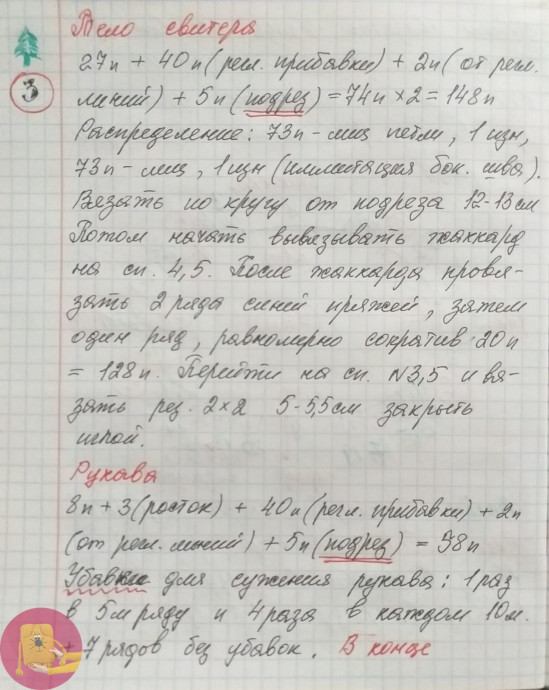 Тело свитера
3
27п + 40п (регл. прибавки) + 2п (от регл.
линий) + 5п (подрез) = 74п × 2 = 148п
Распределение: 73п - лиц петли, 1 изн,
73п - лиц, 1 изн (иммитация бок. шва).
Вязать по кругу от подреза 12-13 см
Потом начать вывязывать жаккард
на сп. 4,5. После жаккарда провя-
зать 2 ряда синей пряжей, затем
один ряд, равномерно сократив 20п
= 128п. Перейти на сп. N3,5 и вя-
зать рез. 2×2 5-5,5см закрыть
иглой.
Рукава
8п + 3 (росток) + 40п (регл. прибавки) + 2п
(от регл. линий) + 5п (подрез) = 58п
Убавки для сужения рукава: 1 раз
в 5м ряду и 4 раза в каждом 10м.
+ 7 рядов без убавок. В конце